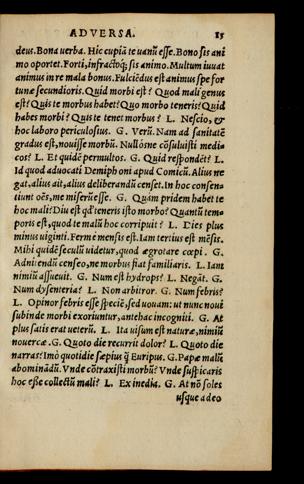 ADVERSA. 15
deus. Bona uerba. Hic cupiā te uanū esse. Bono sis ani
mo oportet. Forti, infractoq; sis animo. Multum iuuat
animus in re mala bonus. Fulciēdus est animus spe for
tunæ secundioris. Quid morbi est? Quod mali genus
est? Quis te morbus habet? Quo morbo teneris? Quid
habes morbi? Quis te tenet morbus? L. Nescio, &
hoc laboro periculosius. G. Verū. Nam ad sanitatē
gradus est, nouisse morbū. Nullōsne cōsuluisti medi-
cos? L. Et quidē permultos. G. Quid respōdēt? L.
Id quod aduocati Demiphoni apud Comicū. Alius ne
gat, alius ait, alius deliberandū censet. In hoc consen-
tiunt oēs, me miserū esse. G. Quàm pridem habet te
hoc mali? Diu est qd' teneris isto morbo? Quantū tem-
poris est, quod te malū hoc corripuit? L. Dies plus
minus uiginti. Fermè mensis est. Iam tertius est mēsis.
Mihi quidē seculū uidetur, quod ægrotare cœpi. G.
Adnitendū censeo, ne morbus fiat familiaris. L. Iam
nimiū assueuit. G. Num est hydrops? L. Negāt. G.
Num dysenteria? L. Non arbitror. G. Num febris?
L. Opinor febris esse speciē, sed uouam: ut nunc nouæ
subinde morbi exoriuntur, antehac incogniti. G. At
plus satis erat ueterū. L. Ita uisum est naturæ, nimiū
nouercæ. G. Quoto die recurrit dolor? L. Quoto die
narras? Imò quotidie sæpius q̄ Euripus. G. Papæ malū
abominādū. Vnde cōtraxisti morbū? Vnde suspicaris
hoc esse collectū mali? L. Ex inedia. G. At nō soles
usque adeo